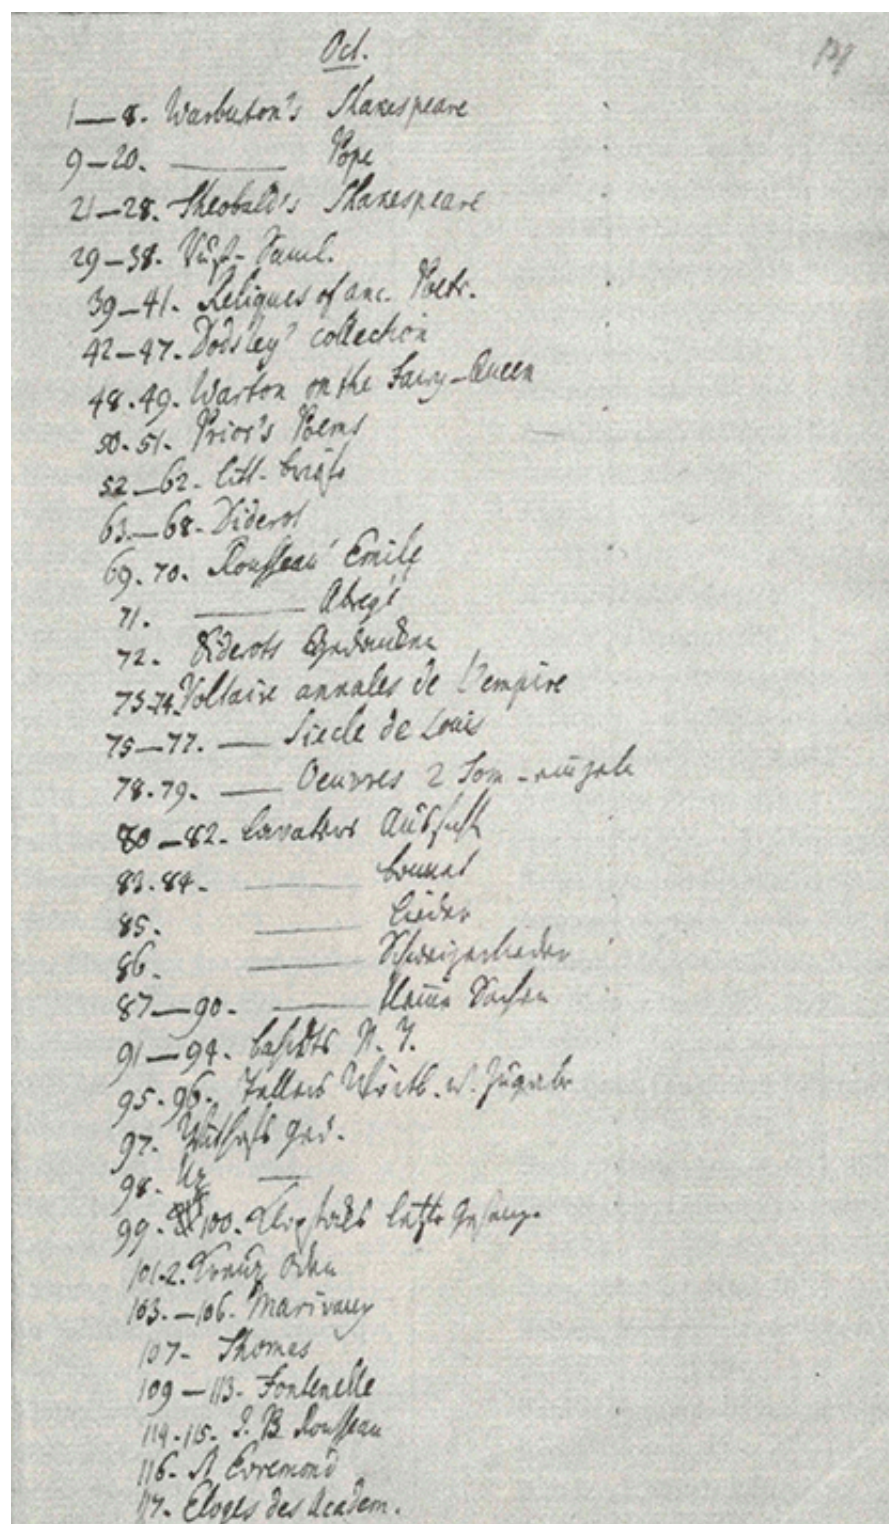 Oct.
1—8. Warburton's Shakespeare
9—20. —— Pope
21—28. Theobald's Shakespeare
29—38.
39—41. Reliques of anc. Poetr.
42—47. Dodsley' collection
48.49. Warton on the Fairy-Queen
50.51. Prior's Poems
52—62. Litt. briefe
63—68. Diderot
69.70. Rousseau' Emile
71. —— Abregé
72. Diderots Gedanken
73.74. Voltaire annales de l'empire
75—77. —— Siecle de Louis
78.79. —— Oeuvres 2 Tom
80—82. Lavaters Aussicht
83.84. —— Bonnet
85. —— Lieder
86. —— Schweizerlieder
87—90. —— kleine Sachen
91—94. N. T.
95.96. Tellers Wörtb. u. Zugabe
97. Ged.
98. Uz ——
99. 100. Klopstocks letzte Gesänge
101.2. Oden
103.—106. Marivaux
107. Thomas
109—113. Fontenelle
114.115. J. B. Rousseau
116. St Evremond
117. Eloges des Academ.